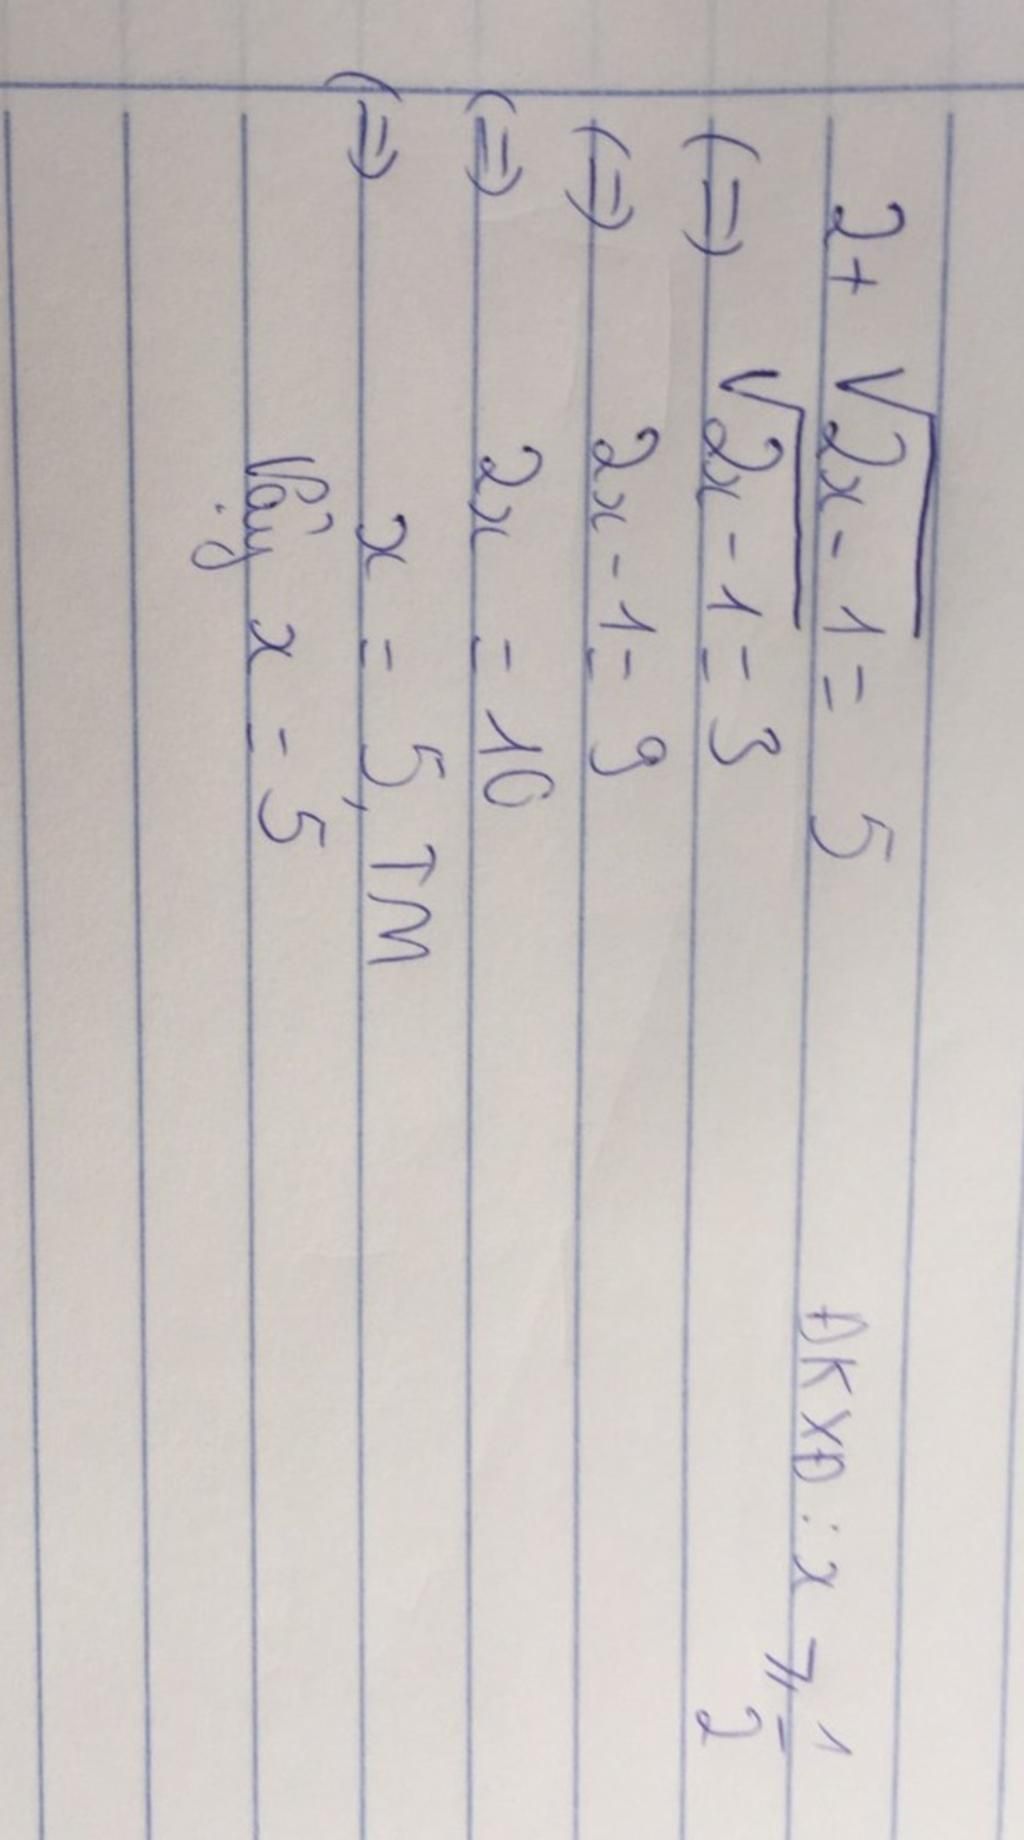 2 + √(2x - 1) = 5 ĐKXĐ : x ⩾ 1/2
(=) √(2x - 1) = 3
(=) 2x - 1 = 9
(=) 2x = 10
(=) x = 5, TM
Vậy x = 5